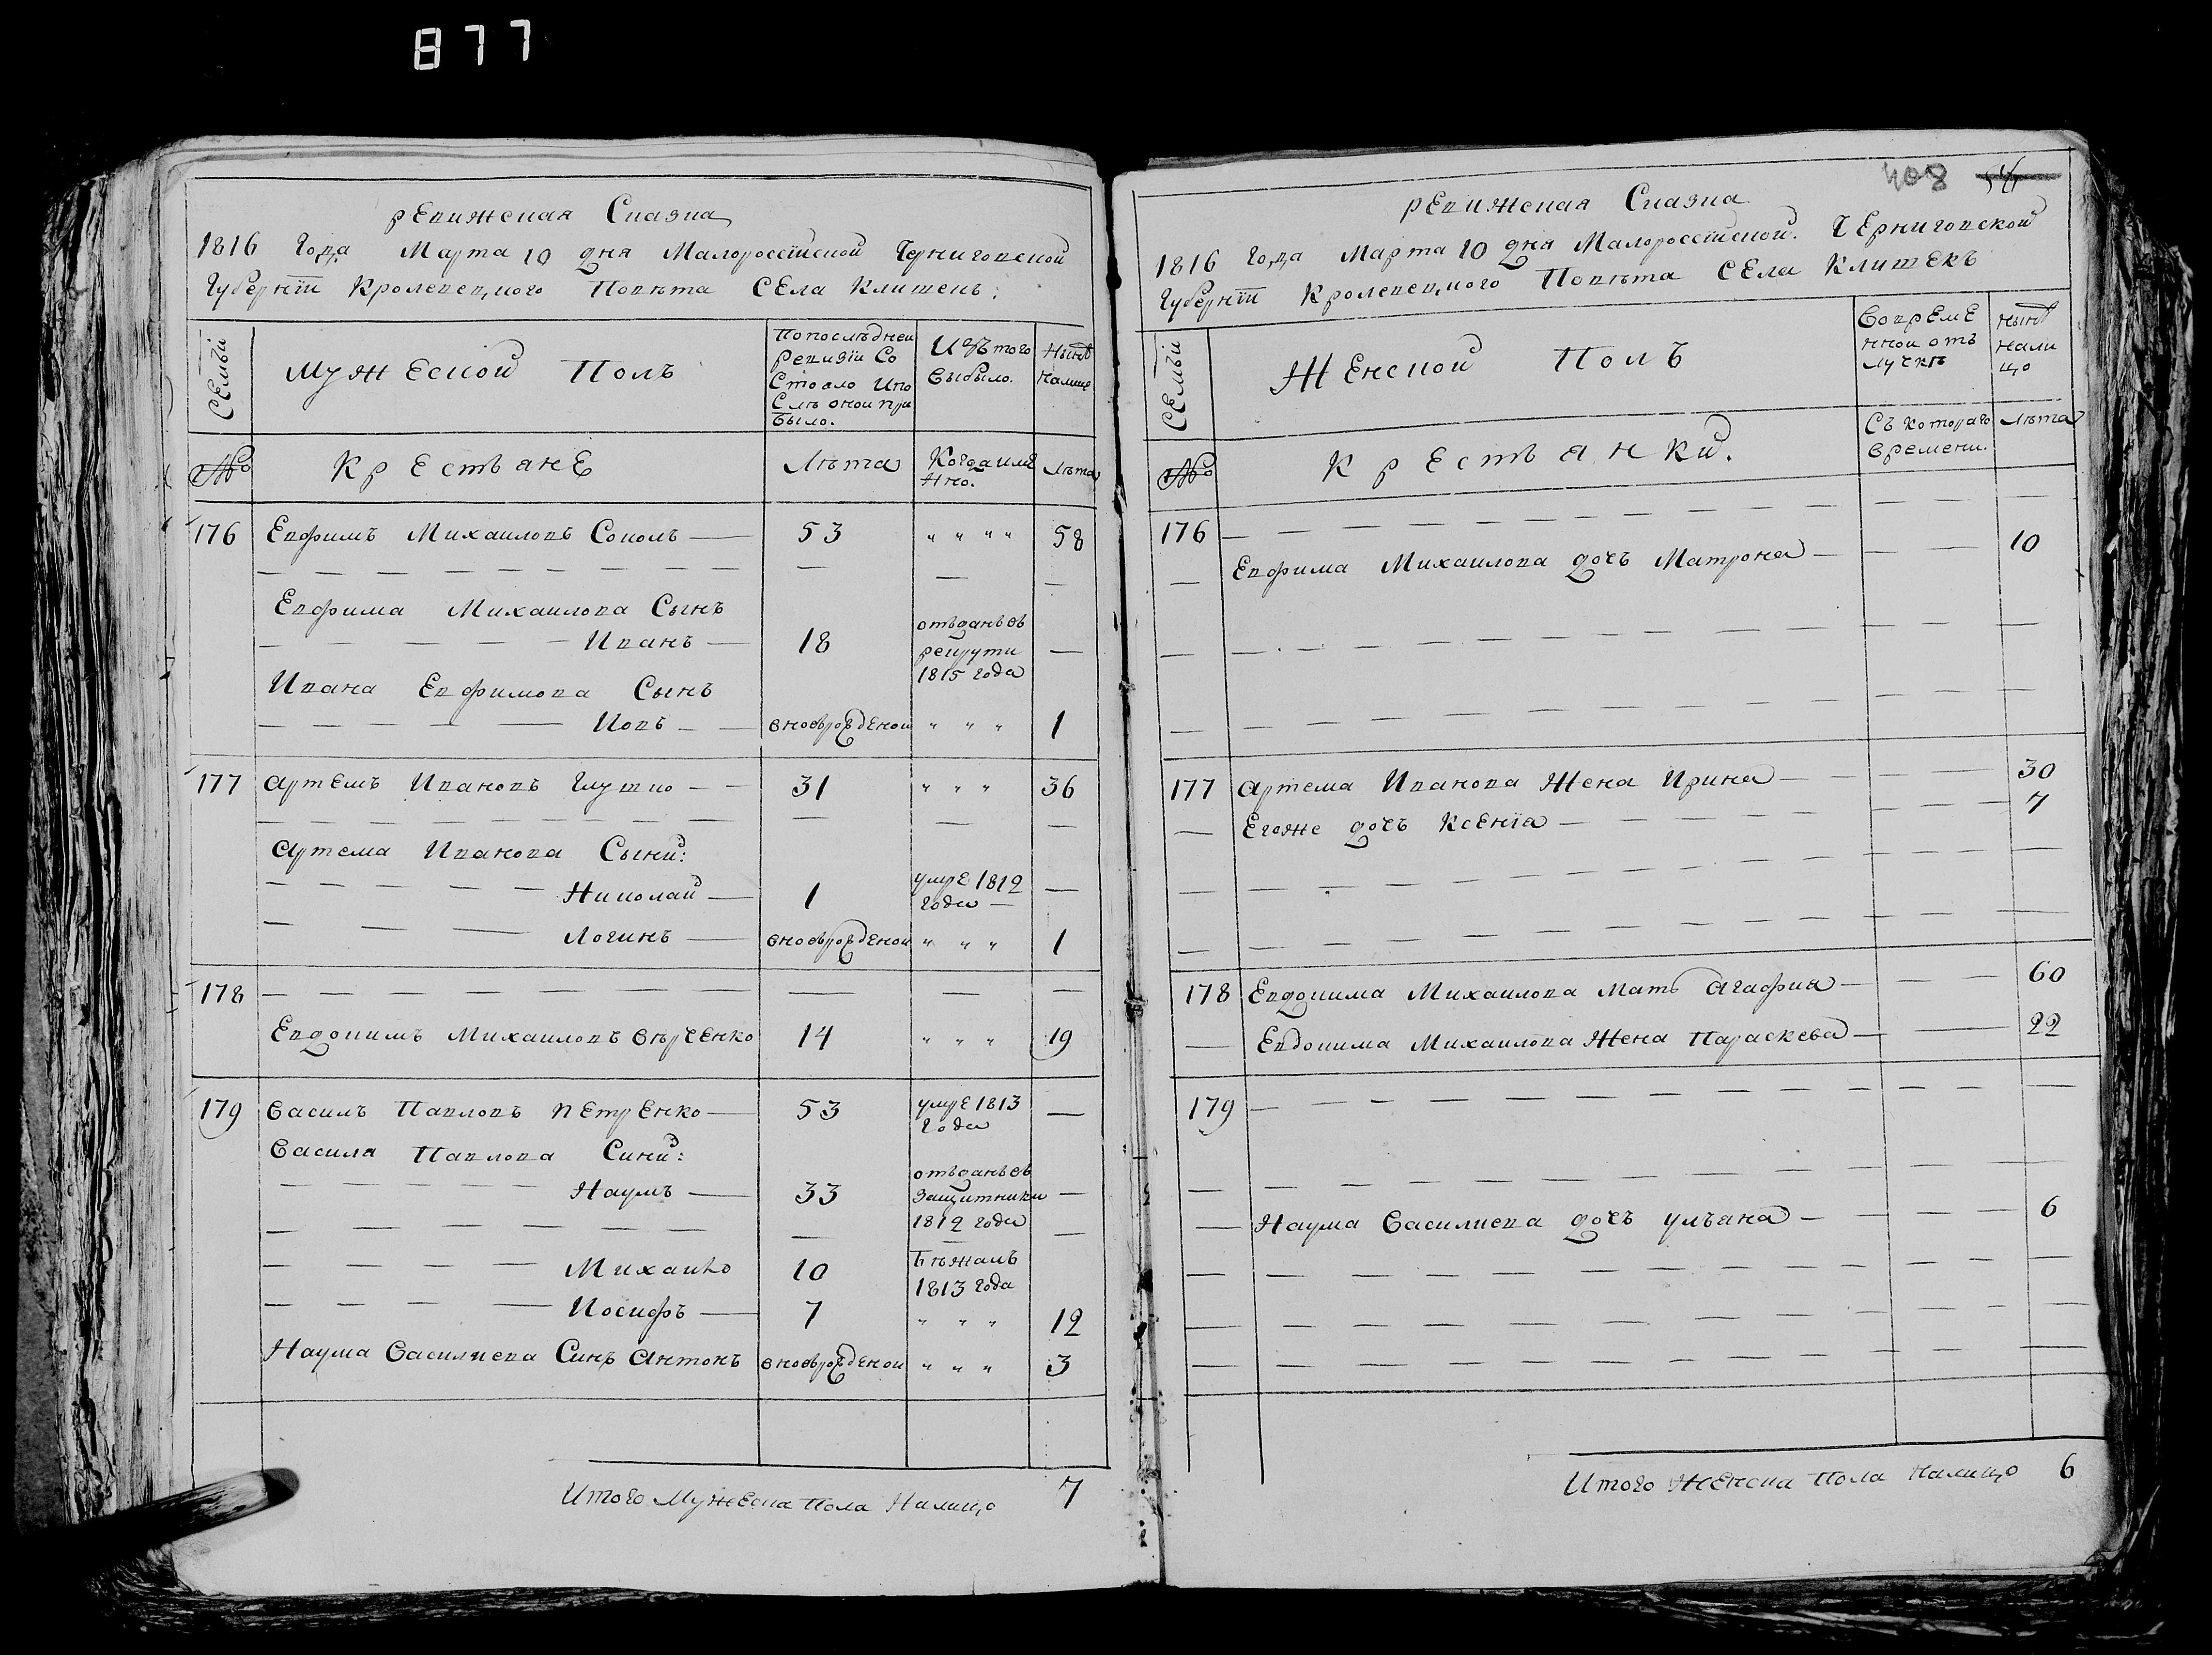 877
Ревижская Сказка
1816 Года Марта 10 дня Малоросеіиской Черниговской
Губерніи Кролевецкого Повѣта Села Клишекъ:
Семьи
Мужеской Полъ
По последней Ревизіи Состояло и после оной прибыло.
Изъ того выбыло.
Нынѣ налице
№
Крестьяне
Лѣта
Когда имянно.
Лѣта
176 Евфимъ Михаиловъ Соколъ 53 " " " " 58
Евфима Михаилова Сынъ
Иванъ 18 отъданъ въ рекрути 1815 года
Ивана Евфимова Сынъ
Иовъ вновърожденои " " " 1
177 Артемъ Ивановъ Глушко 31 " " " 36
Артема Иванова Сыни:
Николай 1 умре 1812 года
Логинъ вновърожденои " " " 1
178
Евдокимъ Михаиловъ Вѣрченко 14 " " " 19
179 Василъ Павловъ Петренко 53 умре 1813 года
Василя Павлова Сини:
Наумъ 33 отъданъ въ защитники 1812 года
Михайло 10 Бѣжалъ 1813 года
Иосифъ 7 " " " 12
Наума Василиева Синъ Антонъ вновърожденои " " " 3
Итого Мужеска Пола Налицо 7
408
Ревижская Сказка
1816 Года Марта 10 дня Малоросеіиской. Черниговской
Губерніи Кролевецкого Повѣта Села Клишекъ
Семьи
Женской Полъ
Во временной отълучкѣ
Нынѣ налицо
№
Крестьянки.
Съ котораго времени.
Лѣта
176
Евфима Михаилова дочъ Матрона 10
177 Артема Иванова Жена Ирина 30
Егоже дочъ Ксенія 7
178 Евдокима Михаилова Мать Агафия 60
Евдокима Михаилова Жена Параскева 22
179
Наума Василиева дочъ Улъяна 6
Итого Женска Пола Налицо 6